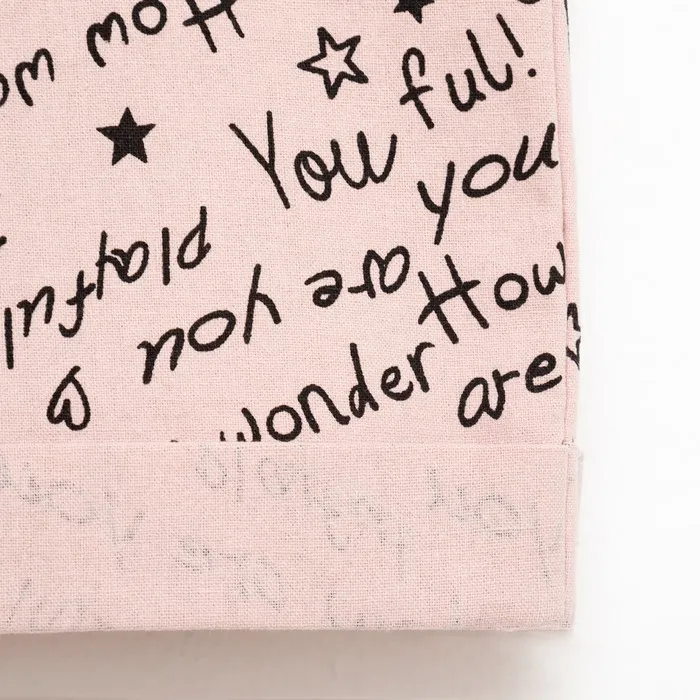 How
ful!
You
you
playful
are you
How
wonder
are